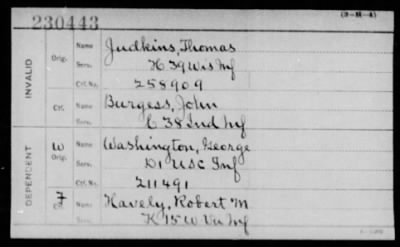 230443
(3-M-A)
INVALID
Orig. Name Judkins, Thomas
Serv. K 39 Wis Inf
Ctf. No. 258909
Ctf. Name Burgess, John
Serv. C 38 Ind Inf
DEPENDENT
W Orig. Name Washington, George
Serv. D 1 USC Inf
Ctf. No. 211491
7 Ctf. Name Havely, Robert M
Serv. K 15 W Va Inf